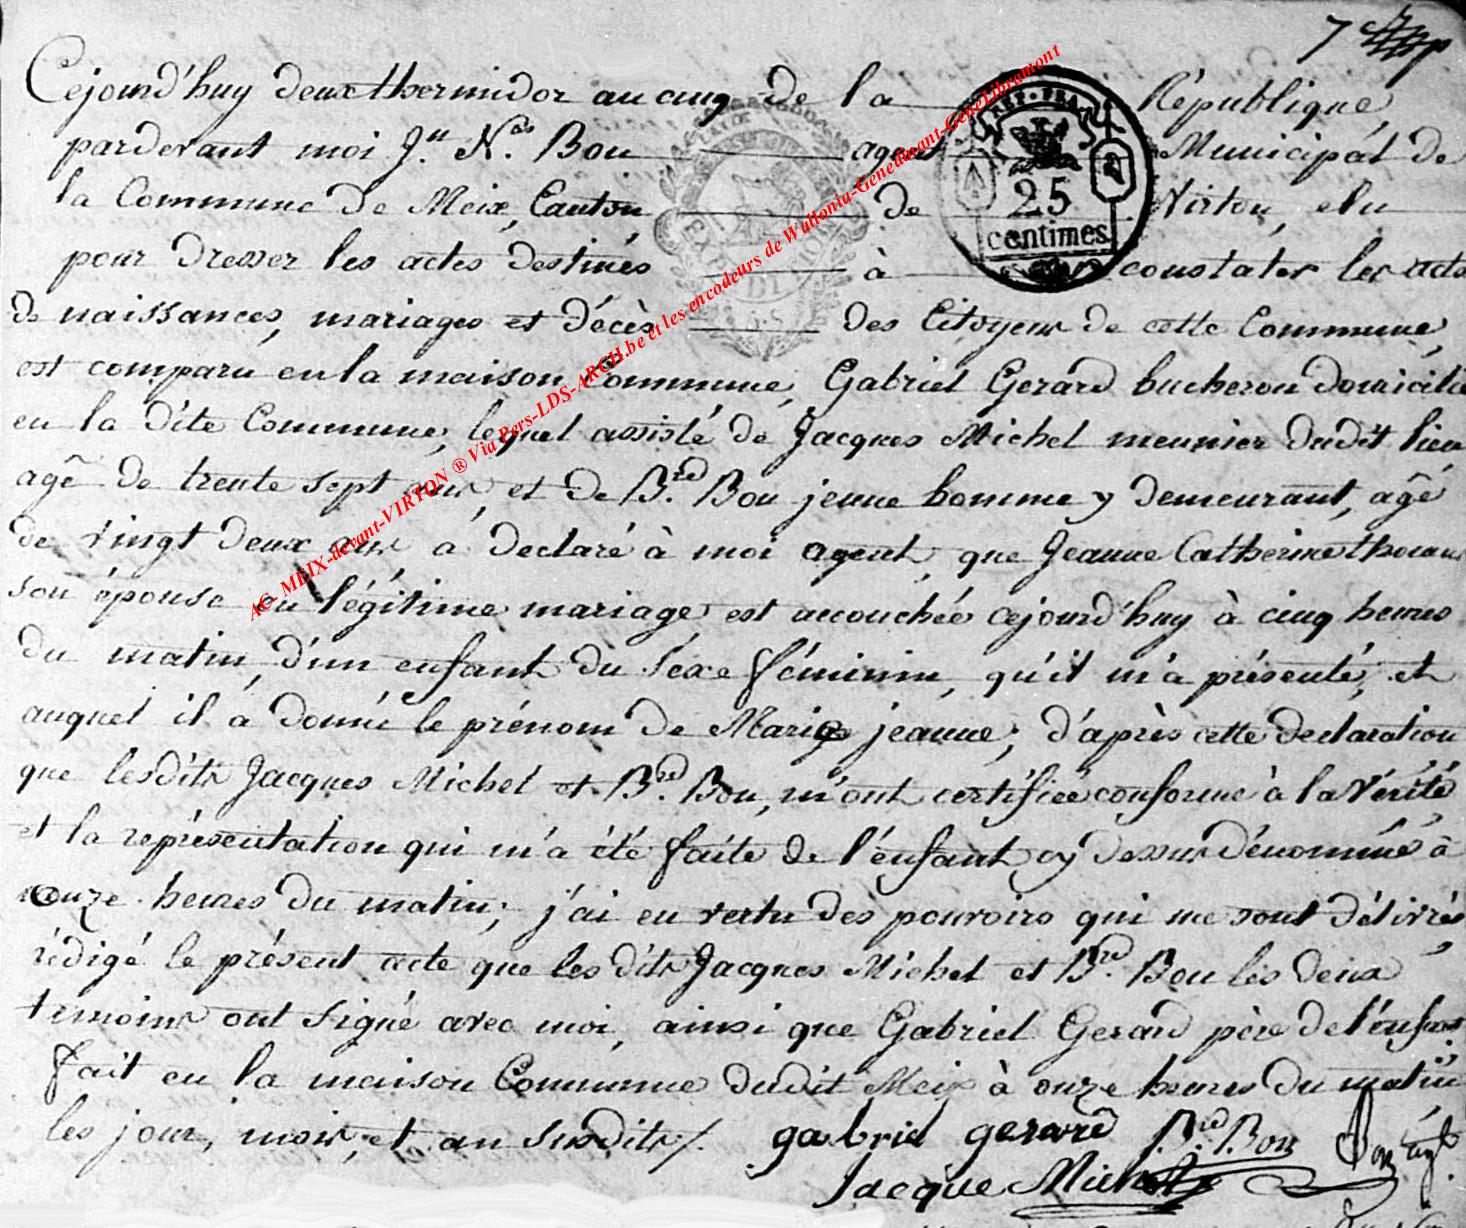 7
Cejourd'huy deux thermidor an cinq de la République,
pardevant moi J.n N.as Bon agent Municipal de
la Commune de Meix, Canton de Virton, elu
pour dresser les actes destinés à constater les actes
de naissances, mariages et décès des Citoyens de cette Commune,
est comparu en la maison Commune, Gabriel Gerard bucheron domicilié
en la dite Commune, lequel assisté de Jacques Michel meunier dudit lieu
agé de trente sept ans, et de B.rd Bon jeune homme y demeurant, agé
de vingt deux ans a déclaré à moi agent, que Jeanne Catherine
son épouse en légitime mariage est accouchée cejourd'huy à cinq heures
du matin, d'un enfant du sexe féminin, qu'il m'a présenté, et
auquel il a donné le prénom de Marie jeanne; d'après cette declaration
que lesdits Jacques Michel et B.rd Bon, m'ont certifiée conforme à la Vérité
et la représentation qui m'a été faite de l'enfant cy dessus dénommé à
onze heures du matin; j'ai en vertu des pouvoirs qui me sont délivrés
rédigé le présent acte que les dits Jacques Michel et B.rd Bon les deux
témoins ont signé avec moi, ainsi que Gabriel Gerard père de l'enfant
fait en la maison Commune dudit Meix à onze heures du matin
les jour, mois, et an susdits/.
gabriel gerard B.rd Bon Bon agt
Jacque Michel
REP. FRA.
25
centimes
AC MEIX-devant-VIRTON ® Via Pers-LDS-ARCH.be et les encodeurs de Wallonia-Genedinant-GeneLibramont